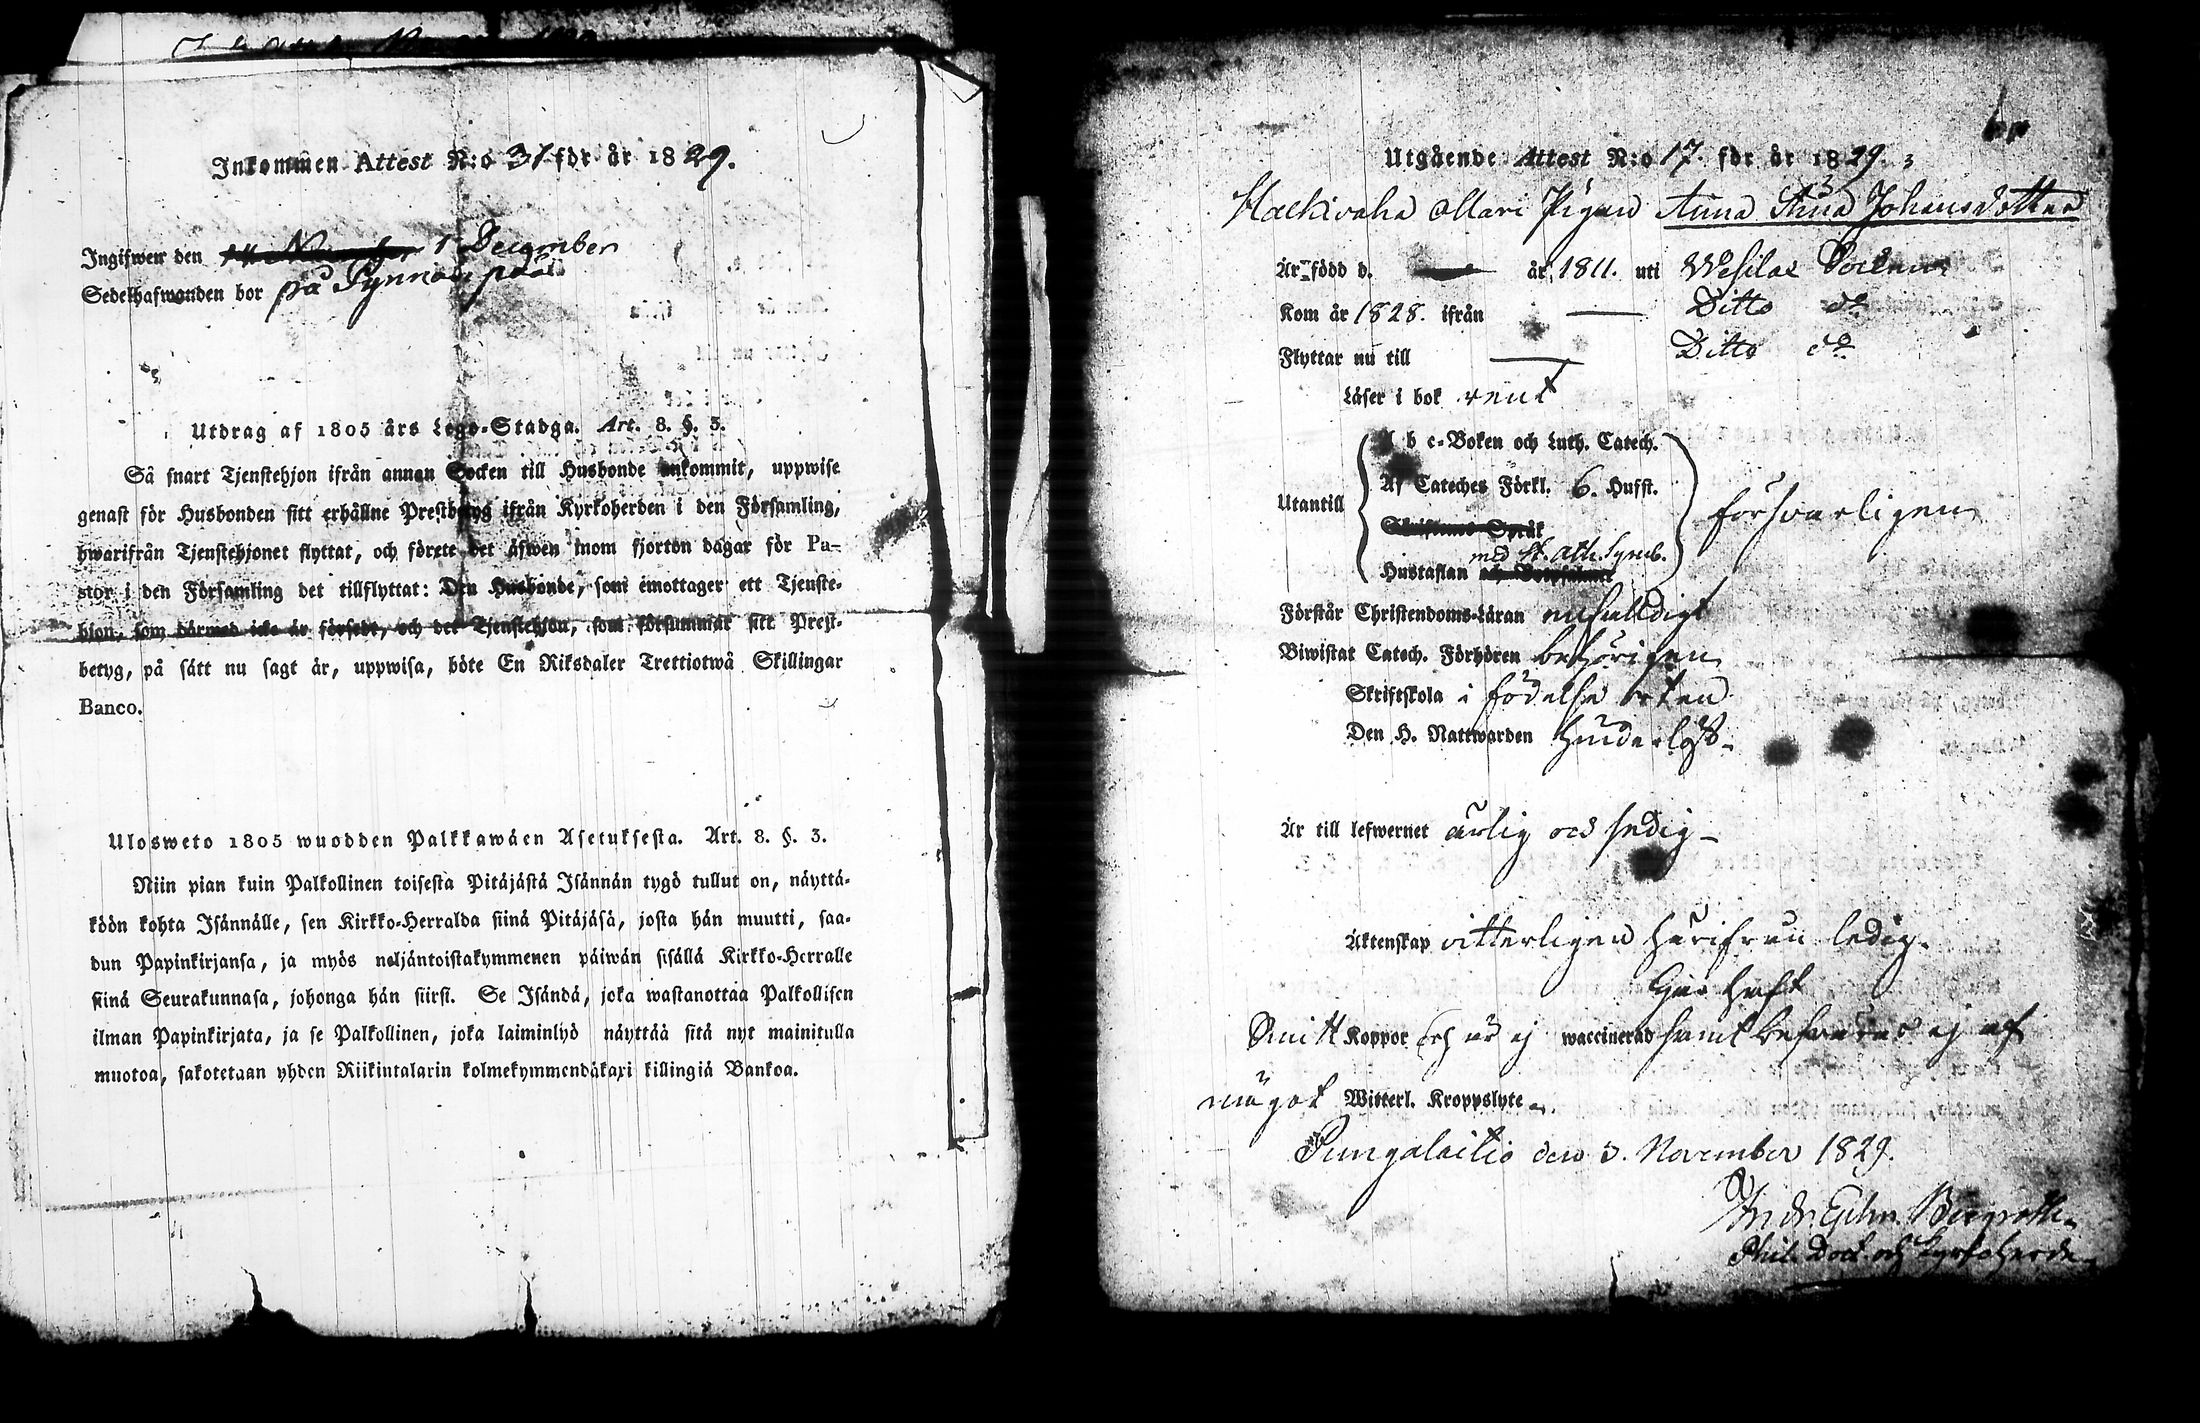 Inkommen Attest N:o 31 för år 1829.
Ingifwen den 1 December
Sedelhafwanden bor på
Utdrag af 1805 års Lego-Stadga. Art. 8. §. 3.
Så snart Tjenstehjon ifrån annan Socken till Husbonde ankommit, uppwise
genast för Husbonden sitt erhållne Prestbetyg ifrån Kyrkoherden i den Församling,
hwarifrån Tjenstehjonet flyttat, och förete det äfwen inom fjorton dagar för Pa-
stor i den Församling det tillflyttat: Den Husbonde, som emottager ett Tjenste-
hjon, som därmed icke är försedt, och det Tjenstehjon, som försummar sitt Prest-
betyg, på sätt nu sagt är, uppwisa, böte En Riksdaler Trettiotwå Skillingar
Banco.
Ulosweto 1805 wuodden Palkkawäen Asetuksesta. Art. 8. §. 3.
Niin pian kuin Palkollinen toisesta Pitäjästä Isännän tygö tullut on, näyttä-
köön kohta Isännälle, sen Kirkko-Herralda siinä Pitäjäsä, josta hän muutti, saa-
dun Papinkirjansa, ja myös neljäntoistakymmenen päiwän sisällä Kirkko-Herralle
siinä Seurakunnasa, johonga hän siirsi. Se Isändä, joka wastanottaa Palkollisen
ilman Papinkirjata, ja se Palkollinen, joka laiminlyö näyttää sitä nyt mainitulla
muotoa, sakotetaan yhden Riikintalarin kolmekymmendäkaxi killingiä Bankoa.
Utgående Attest N:o 17. för år 1829.
Pigan Anna Johansdotter
Är född d. år 1811. uti Socken
Kom år 1828. ifrån — Ditto do
Flyttar nu till — Ditto do
Läser i bok rent
Utantill
A b c-Boken och Luth. Catech.
Af Cateches Förkl. 6. Hufst.
Skriftenes Språk
med St. Ath. Symb.
Hustaflan
försvarligen
Förstår Christendoms-Läran enfaldigt
Biwistat Catech. Förhören behörigen
Skriftskola i födelse orten
Den H. Nattwarden
Är till lefwernet ärlig och sedig —
Äktenskap vitterligen härifrån ledig.
Har haft
Smitt Koppor och är ej waccinerad samt besväras ej af
något Witterl. Kroppslyte.
Pungalaitio den 3. November 1829.
Phil. Doct. och Kyrkoherde